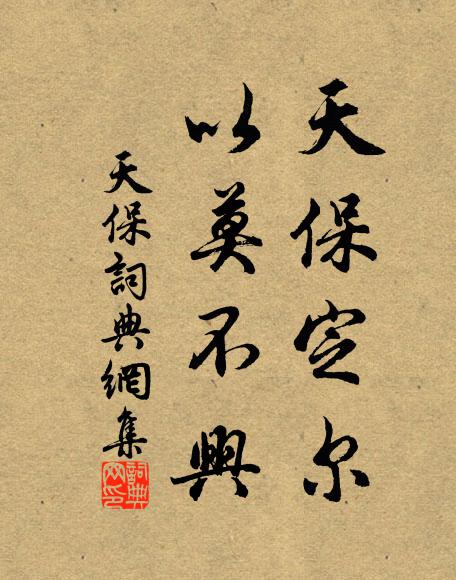 天保定尔
以莫不興
天保詞典網集
詞典
网印